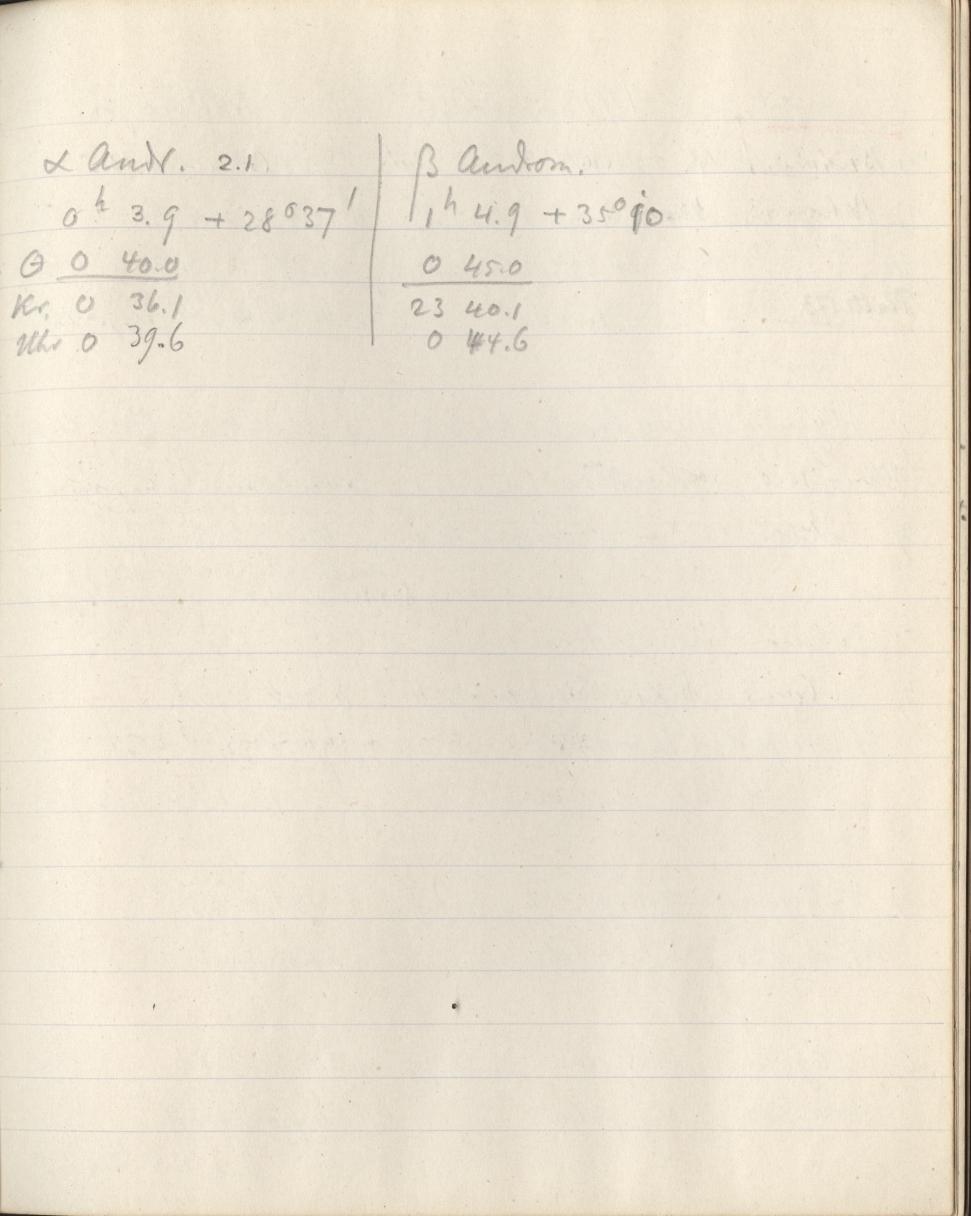 α Andr. 2.1
0ʰ 3.9 + 28°37'
θ 0 40.0
Kr. 0 36.1
Uhr 0 39.6
β Androm.
1ʰ 4.9 + 35°10
0 45.0
23 40.1
0 44.6